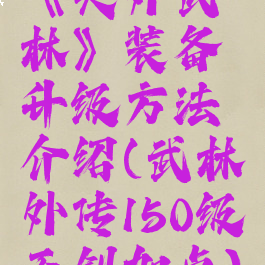 武
林》装备
升级方法
介绍(武林
外传150级